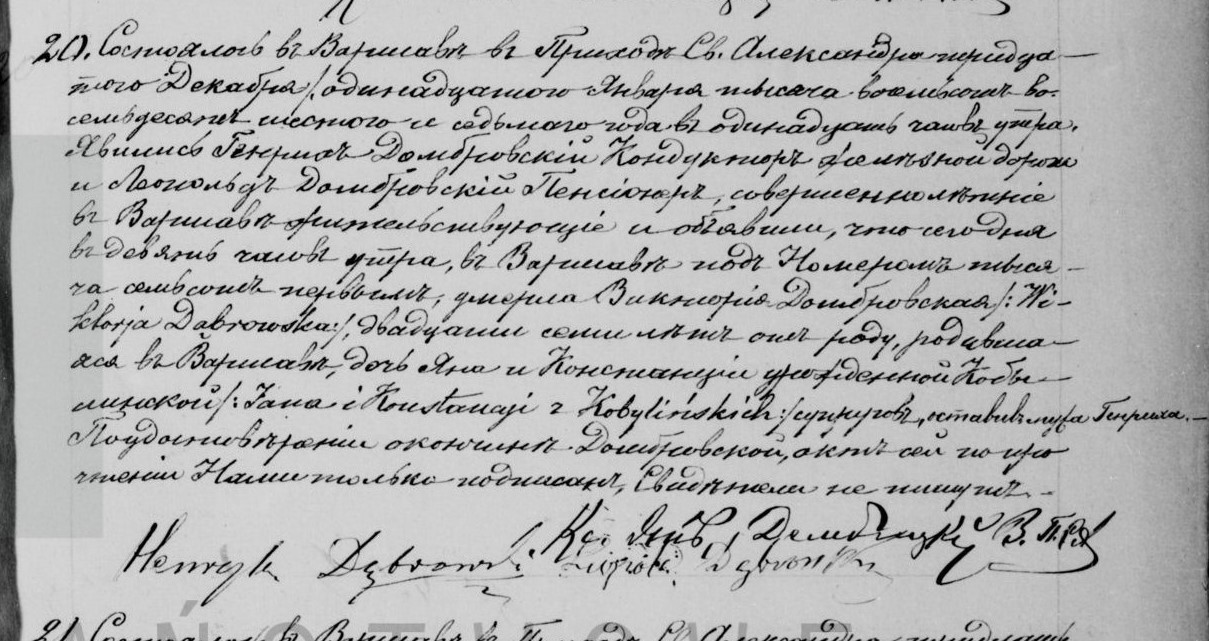 20. Состоялось въ Варшавѣ въ Приходѣ Св. Александра тридца-
таго Декабря /: одинадцатаго Января тысяча восемьсотъ во-
семьдесятъ шестаго и седьмаго года въ одинадцать часовъ утра.
Явились Генрихъ Домбровскій Кондукторъ желѣзной дороги
и Леопольдъ Домбровскій Пенсіонеръ, совершеннолѣтніе
въ Варшавѣ жительствующіе и объявили, что сегодня
въ девять часовъ утра, въ Варшавѣ подъ Номеромъ тыся-
ча семьсотъ первымъ, умерла Викторія Домбровская /: Wi-
ktorja Dąbrowska :/, двадцати семи лѣтъ отъ роду, родивша-
яся въ Варшавѣ, дочь Яна и Констанціи урожденной Кобы-
линской /: Jana i Konstancji z Kobylińskich :/ супруговъ, оставивъ мужа Генриха. -
По удостовѣреніи о кончинѣ Домбровской, актъ сей по про
чтеніи Нами только подписанъ, Свидѣтели не пишутъ. -
Кс. Янъ Дембицкій В. П.
Henryk Dąbrowski Leopold Dąbrowski
21. Состоялось въ Варшавѣ въ Приходѣ Св. Александра